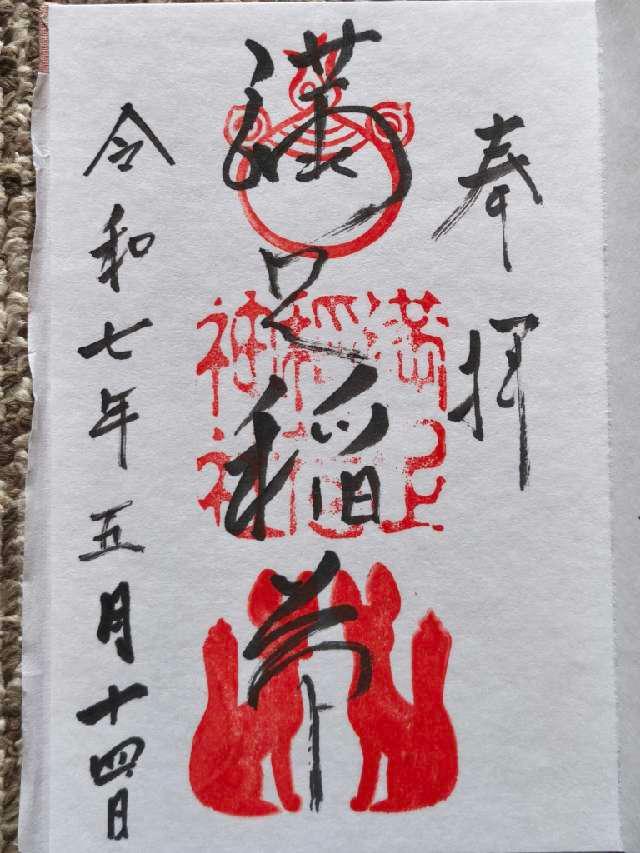 奉拝
満足稲荷
満足
稲荷
神社
令和七年五月十四日